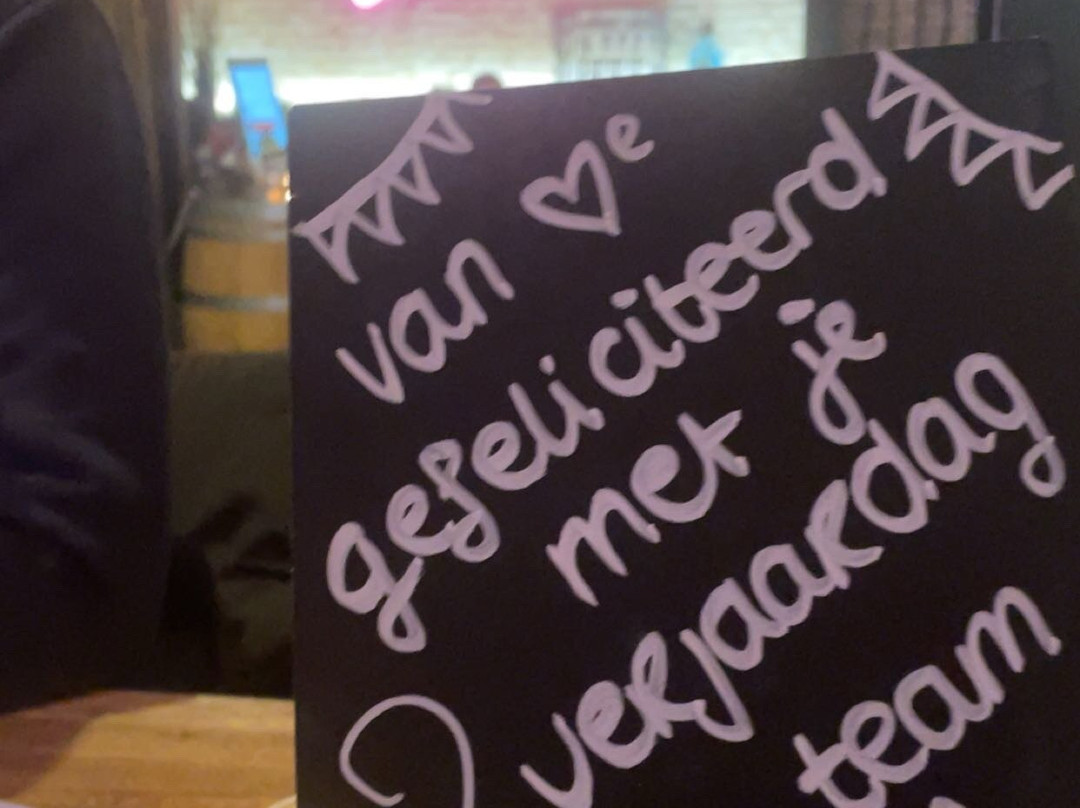 van ♡e
gefeliciteerd
met je
verjaardag
team